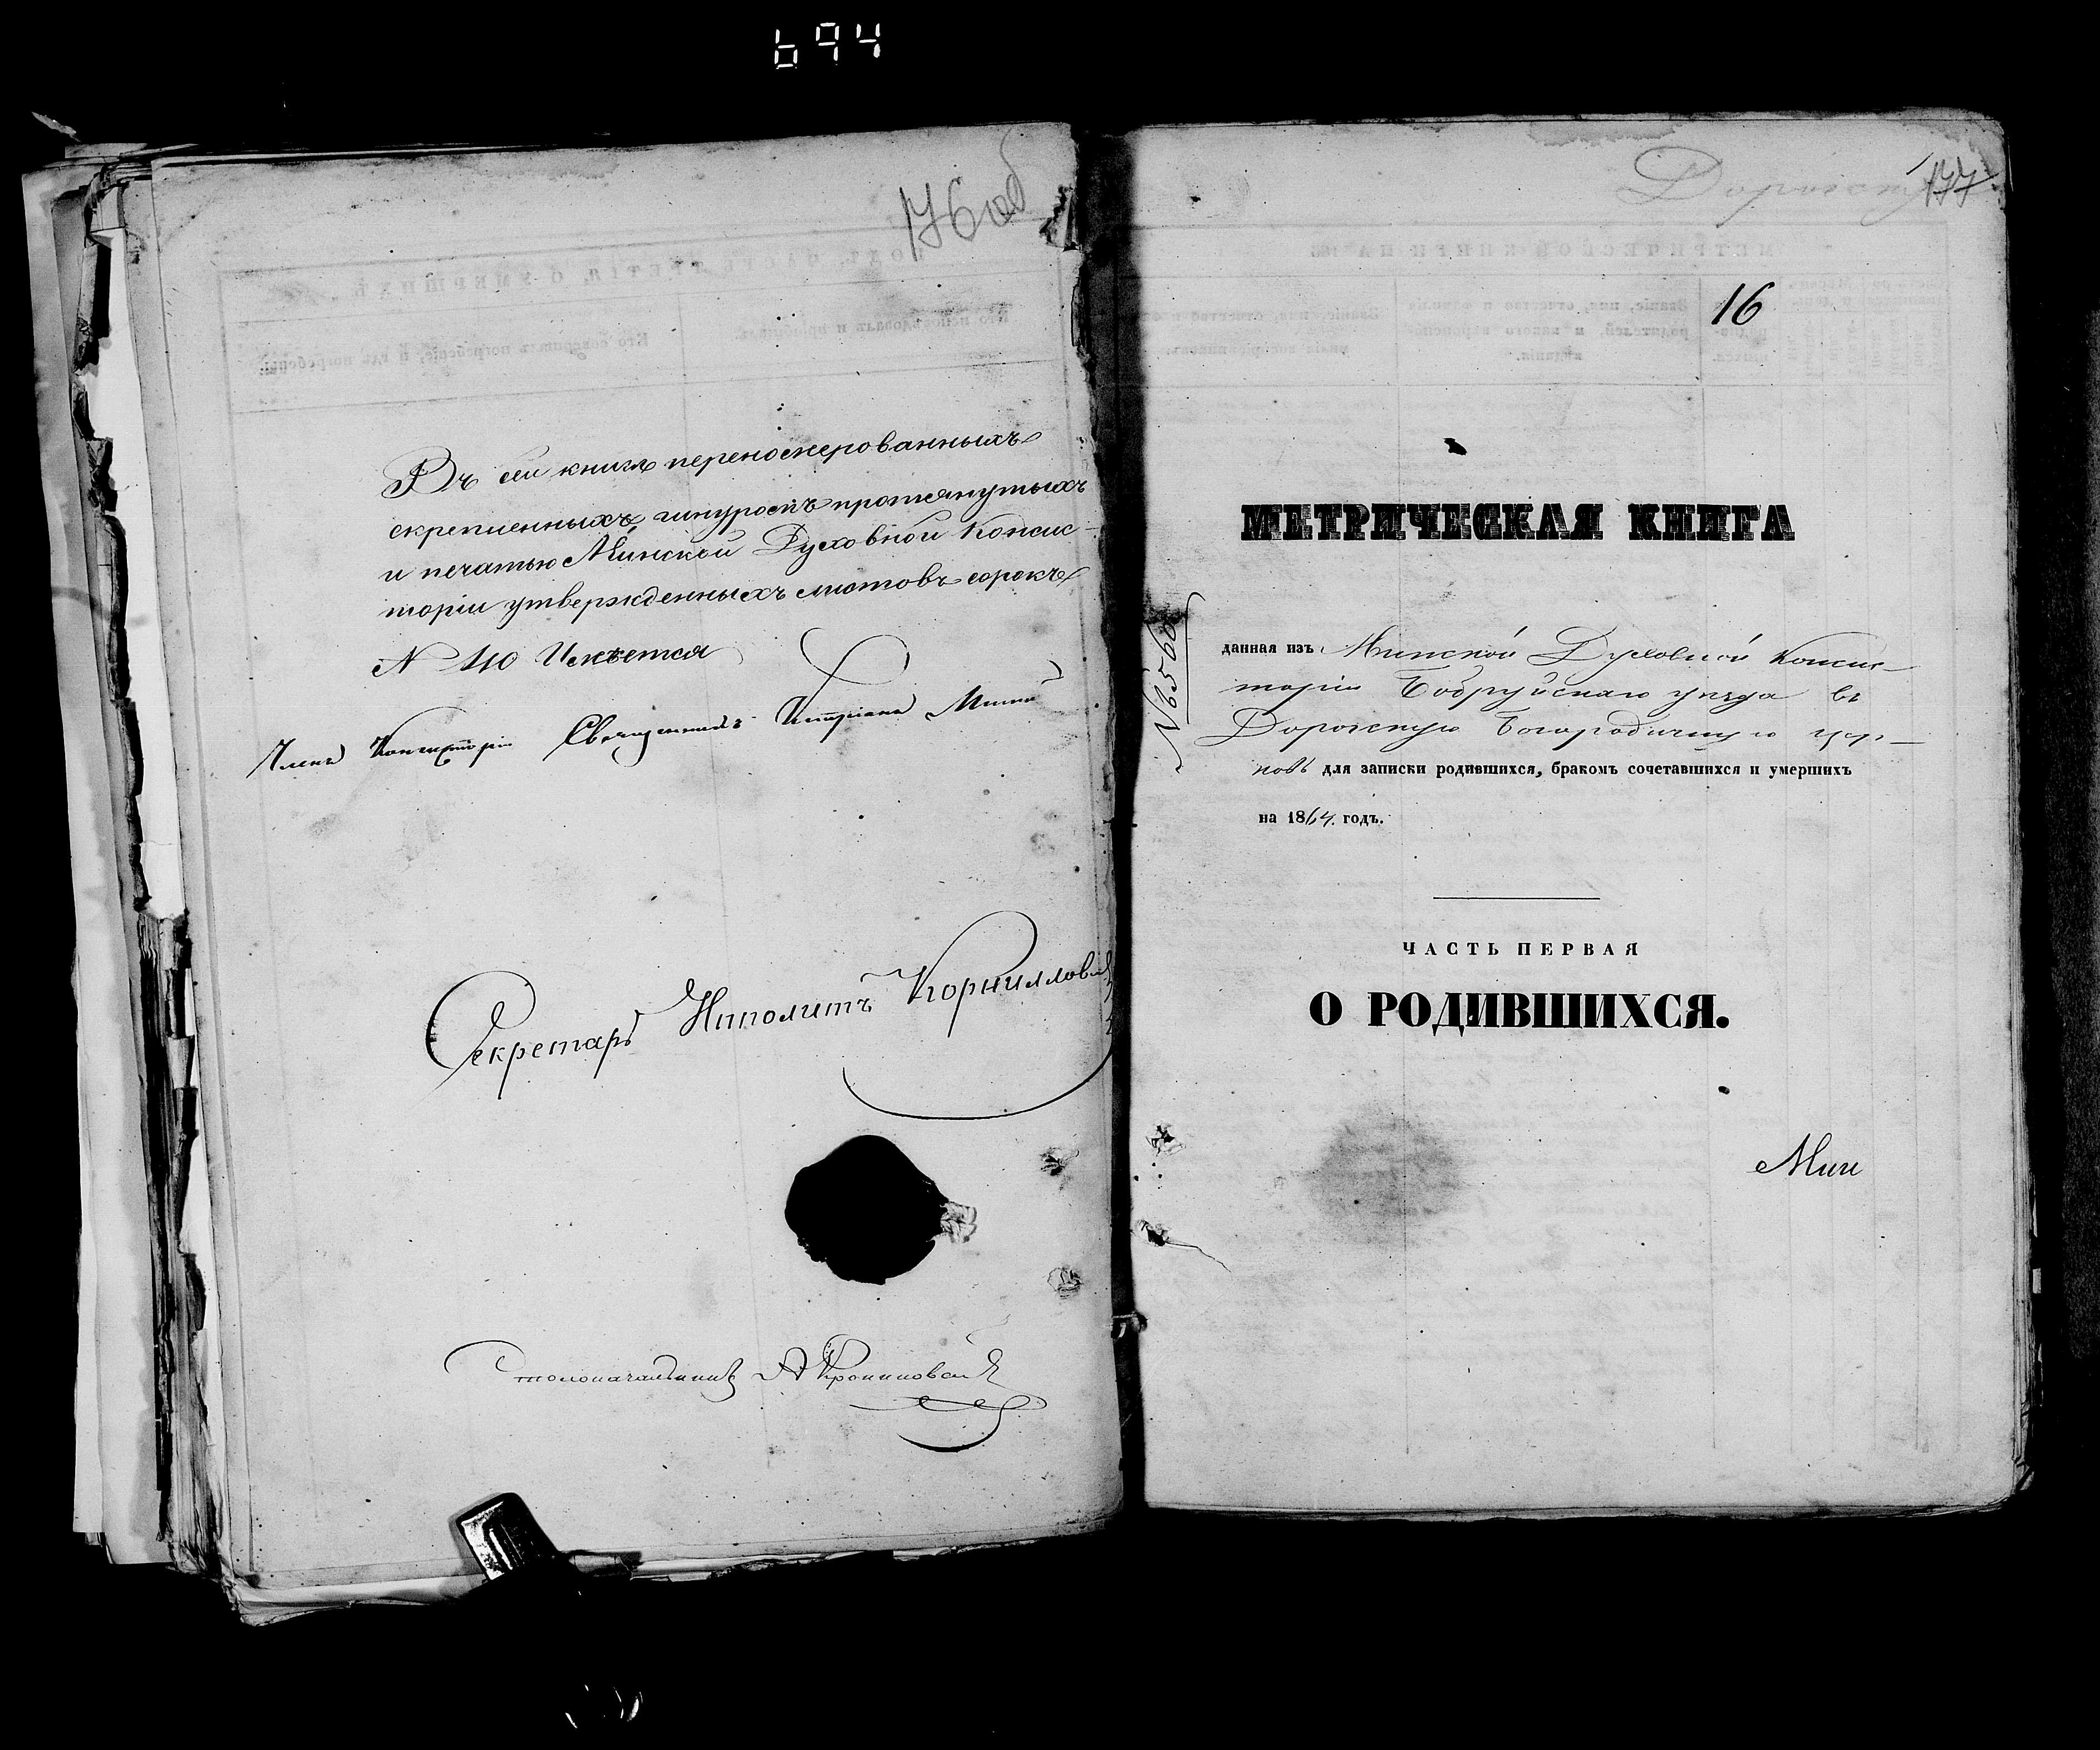 694
176об
Въ сей книгѣ перенумерованныхъ
скрепленныхъ, шнуромъ протянутыхъ
и печатью Минской Духовной Консис-
торіи утвержденныхъ листовъ сорокъ
N 40 Имѣется
Членъ Консисторіи Священникъ
Секретарь Ипполитъ Корниллов
Столоначальникъ А
177
16
МЕТРИЧЕСКАЯ КНИГА
N 6560
данная изъ Минской Духовной Консис-
торіи Бобруйскаго уѣзда въ
Дорожскую Богородичную цер-
ковь для записки родившихся, бракомъ сочетавшихся и умершихъ
на 1864. годъ.
ЧАСТЬ ПЕРВАЯ
О РОДИВШИХСЯ.